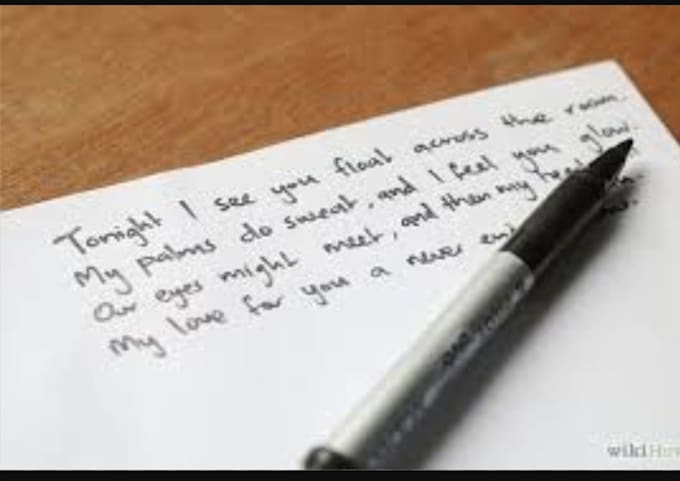 Tonight I see you float across the room.
My palms do sweat, and I feel you glow.
Our eyes might meet, and then my
My love for you a never
wikiHow